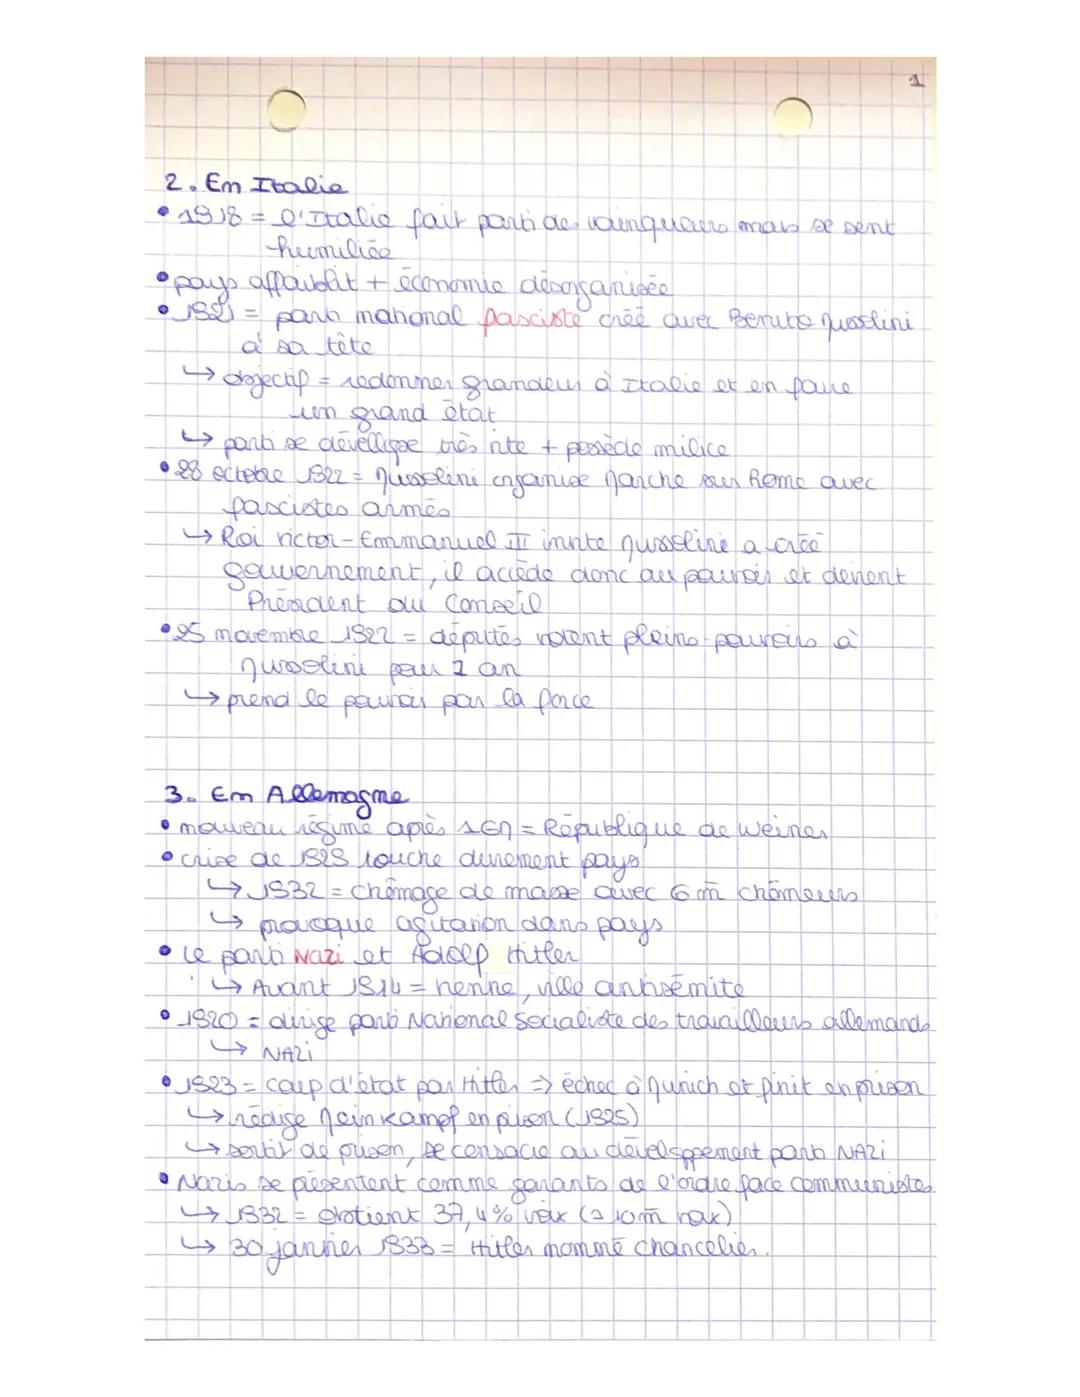 1
2. En Italie
• 1918 = l'Italie fait parti des vainqueurs mais se sent
humiliée
• pays affaiblit + économie désorganisée
• 1921 = parti national fasciste créé avec Benito Mussolini
à sa tête
↳ objectif = redonner grandeur à Italie et en faire
un grand état
↳ parti se développe très vite + possède milice
• 28 octobre 1922 = Mussolini organise Marche sur Rome avec
fascistes armés
↳ Roi Victor-Emmanuel III invite Mussolini a créé
gouvernement, il accède donc au pouvoir et devient
Président du Conseil
• 25 novembre 1922 = députés votent pleins-pouvoirs à
Mussolini pour 1 an
↳ prend le pouvoir par la force
3. En Allemagne
• nouveau régime après 1GM = République de Weimer
• crise de 1929 touche durement pays
↳ 1932 = chômage de masse avec 6 m chômeurs
↳ provoque agitation dans pays
• Le parti Nazi et Adolf Hitler
↳ Avant 1914 = Vienne, ville antisémite
• 1920 = dirige parti National Socialiste des travailleurs allemands
↳ NAZI
• 1923 = coup d'état par Hitler => échec à Munich et finit en prison
↳ rédige Mein Kampf en prison (1925)
↳ sortit de prison, se consacre au développement parti NAZI
• Nazis se présentent comme garants de l'ordre face communistes
↳ 1932 = obtient 37,4% voix 10 m voix)
↳ 30 janvier 1933 = Hitler nommé chancelier.